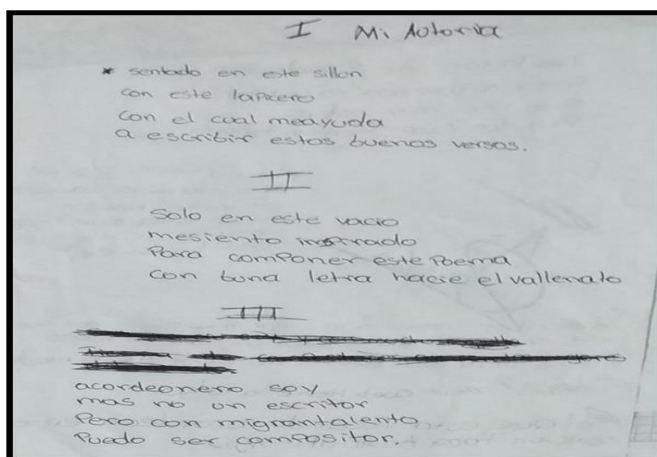 I Mi Autoria
* sentado en este sillon
con este lapicero
con el cual meayuda
a escribir estos buenos versos.
II
Solo en este vacio
mesiento inspirado
Para componer este Poema
con buna letra hacie el vallenato
III
acordeonero soy
mas no un escritor
Pero con migrantalento
Puedo ser compositor.